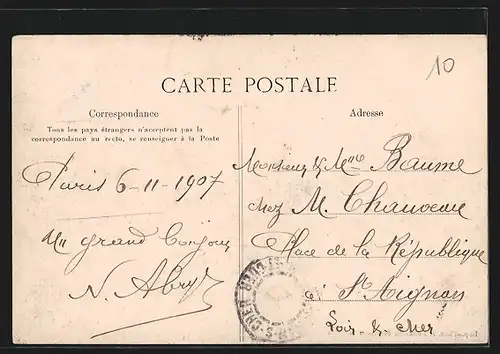 10
CARTE POSTALE
Correspondance
Tous les pays étrangers n'acceptent pas la
correspondance au recto, se renseigner à la Poste
Paris 6-11-1907
Un grand bonjour
N. Abry
Adresse
Monsieur & Mme Baume
chez M. Chauveau
Place de la République
à St Aignan
Loir & Cher